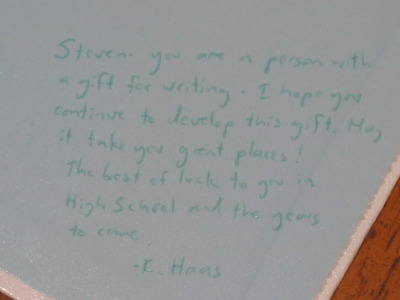 Steven- you are a person with
a gift for writing. I hope you
continue to develop this gift. May
it take you great places!
The best of luck to you in
High School and the years
to come
-K. Haas